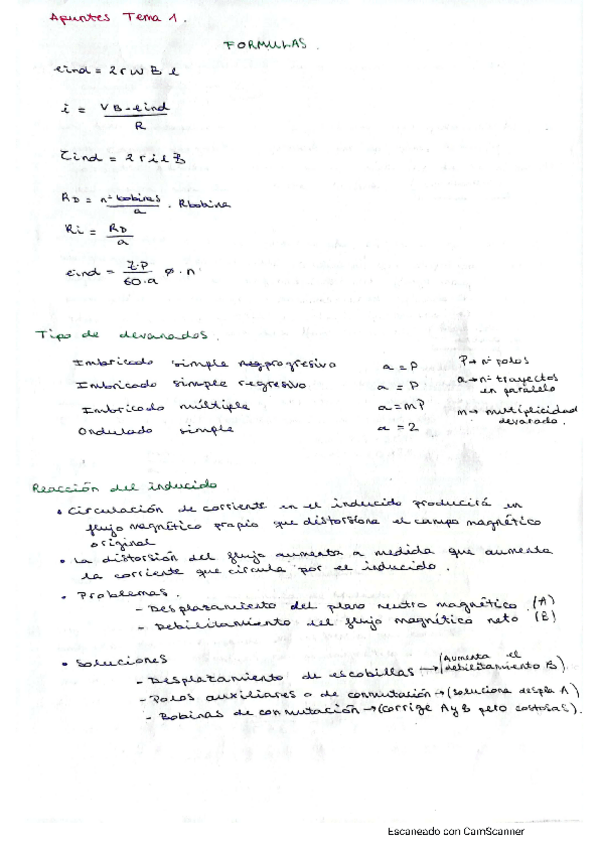 Apuntes Tema 1.
FORMULAS.
eind = 2 r w B l
i = VB - eind / R
τind = 2 r i l B
RD = nº bobinas / a · Rbobina
Ri = RD / a
eind = Z·P / 60·a ø·n
Tipo de devanados.
Imbricado simple progresivo a = P P→ nº polos
Imbricado simple regresivo a = P a→ nº trayectos en paralelo
Imbricado múltiple a = mP m→ multiplicidad devanado.
Ondulado simple a = 2
Reacción del inducido
• Circulación de corriente en el inducido producirá un
flujo magnético propio que distorsiona el campo magnético
original
• La distorsión del flujo aumenta a medida que aumenta
la corriente que circula por el inducido.
• Problemas.
- Desplazamiento del plano neutro magnético. (A)
- Debilitamiento del flujo magnético neto (B)
• Soluciones
- Desplazamiento de escobillas → (Aumenta el debilitamiento B)
- Polos auxiliares o de conmutación → (soluciona despla A)
- Bobinas de conmutación → (corrige A y B pero costosas).
Escaneado con CamScanner